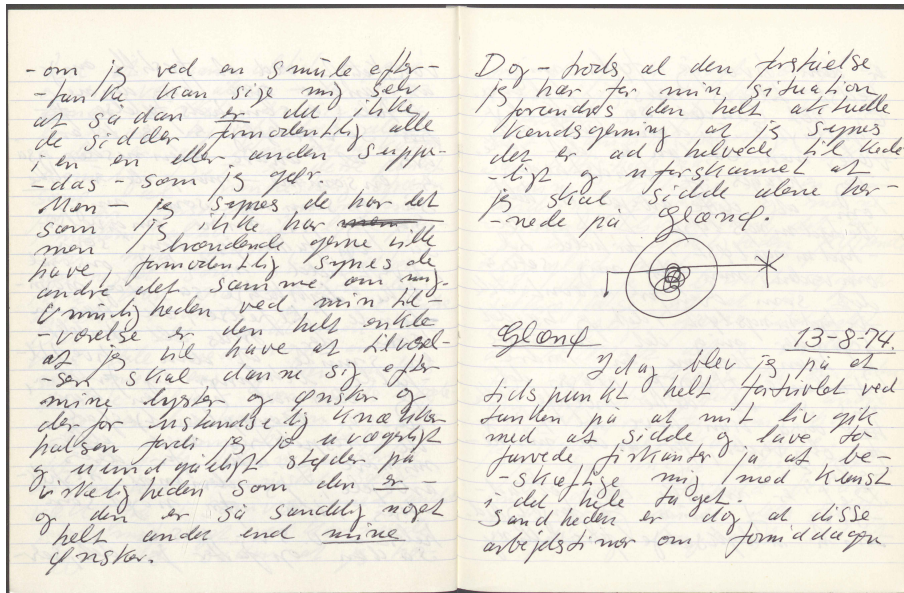 - om jeg ved en smule efter-
- tanke kan sige mig selv
at sådan er det ikke
de sidder formodentlig alle
i en en eller anden suppe-
- das - som jeg gør
Men - jeg synes de har det
som jeg ikke har
men brændende gerne ville
have, formodentlig synes de
andre det samme om mig.
Umuligheden ved min til-
- værelse er den helt enkle
at jeg vil have at tilværel-
- sen skal danne sig efter
mine lyster og ønsker og
derfor ustandselig knækker
halsen fordi jeg jo uvægerligt
og uundgåeligt støder på
virkeligheden som den er -
og den er så sandelig noget
helt andet end mine
ønsker.
Dog - trods al den forståelse
jeg har for min situation
forandres den helt aktuelle
kendsgerning at jeg synes
det er ad helvede til kede
- ligt og uforskammet at
jeg skal sidde alene her-
- nede på Glænø.
Glænø 13-8-74.
Idag blev jeg på et
tidspunkt helt fortvivlet ved
tanken på at mit liv gik
med at sidde og lave to
farvede firkanter ja at be-
- skæftige mig med kunst
i det hele taget.
Sandheden er dog at disse
arbejdstimer om formiddagen